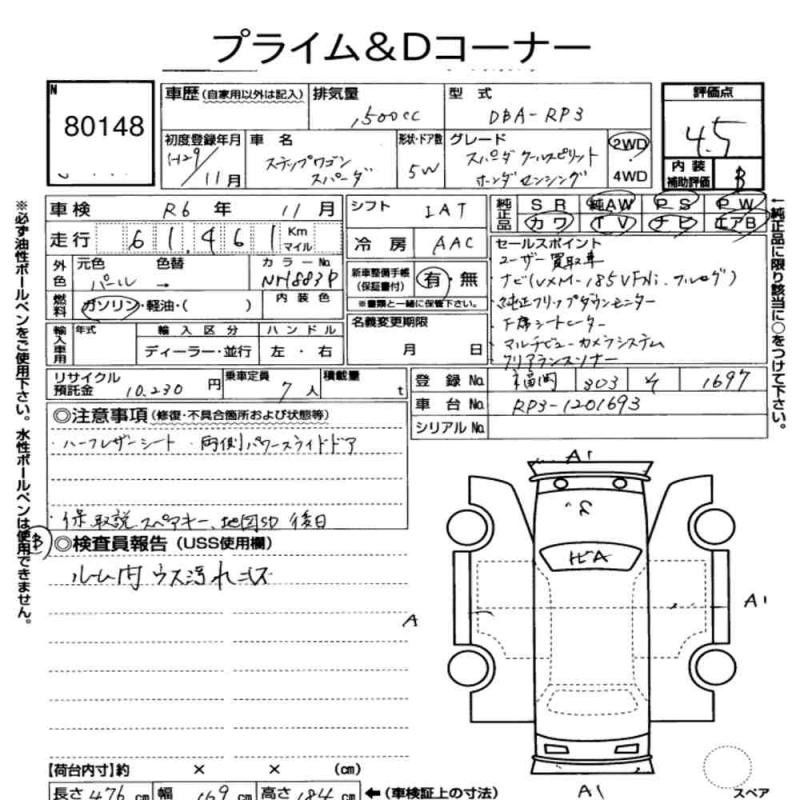 プライム&Dコーナー
N
80148
車歴 (自家用以外は記入) 排気量 1,500cc 型式 DBA-RP3
評価点
4.5
内装補助評価 B
初度登録年月 H29/11月
車名 ステップワゴン スパーダ
形状・ドア数 5W
グレード スパーダ クールスピリット ホンダセンシング
2WD
4WD
車検 R6年 11月
走行 61,461 Km マイル
シフト IAT
冷房 AAC
純正品 SR 純AW PS PW
カワ TV ナビ エアB
外色 元色 パール 色替 → カラーNo. NH883P
燃料 ガソリン・軽油・( ) 内装色
新車整備手帳 (保証書付) 有・無
※書類と一緒に保管下さい。
セールスポイント
ユーザー買取車
ナビ(VXM-185VFNi、フルセグ)
純正フリップダウンモニター
下席シートヒーター
マルチビューカメラシステム
クリアランスソナー
輸入車用 年式 輸入区分 ハンドル
ディーラー・並行 左・右
名義変更期限
月 日
リサイクル預託金 10,230円 乗車定員 7人 積載量 t
登録No. 福岡 303 1697
車台No. RP3-1201693
シリアルNo.
◎注意事項 (修復・不具合箇所および状態等)
ハーフレザーシート・両側パワースライドドア
・保 取説 スペアキー、地図SD 後日
B
◎検査員報告 (USS使用欄)
ルーム内 ウス汚れ キズ
A1
ヒビA
A
A1
A1
スペア
【荷台内寸】約 × × (cm)
長さ 476 cm 幅 169 cm 高さ 184 cm ←(車検証上の寸法)
※必ず油性ボールペンをご使用下さい。水性ボールペンは使用できません。
純正品に限り該当に○をつけて下さい。